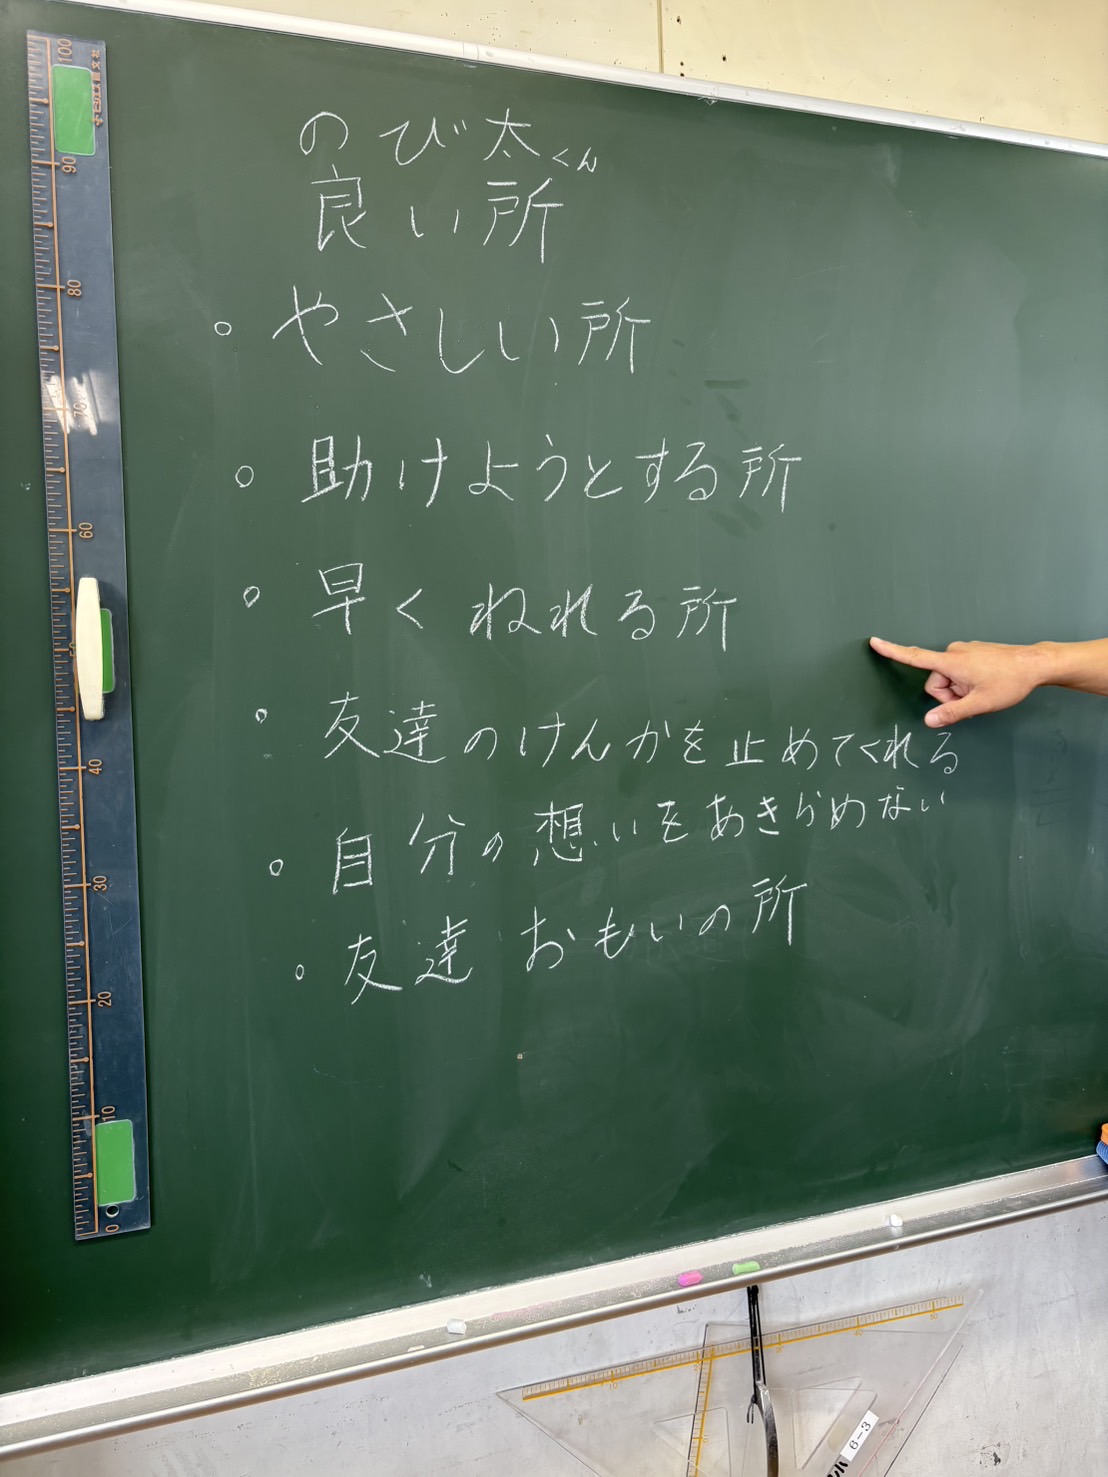 のび太くん
良い所
。やさしい所
。助けようとする所
。早くねれる所
。友達のけんかを止めてくれる
。自分の想いをあきらめない
。友達おもいの所
100
90
80
70
60
50
40
30
20
10
0
6-3